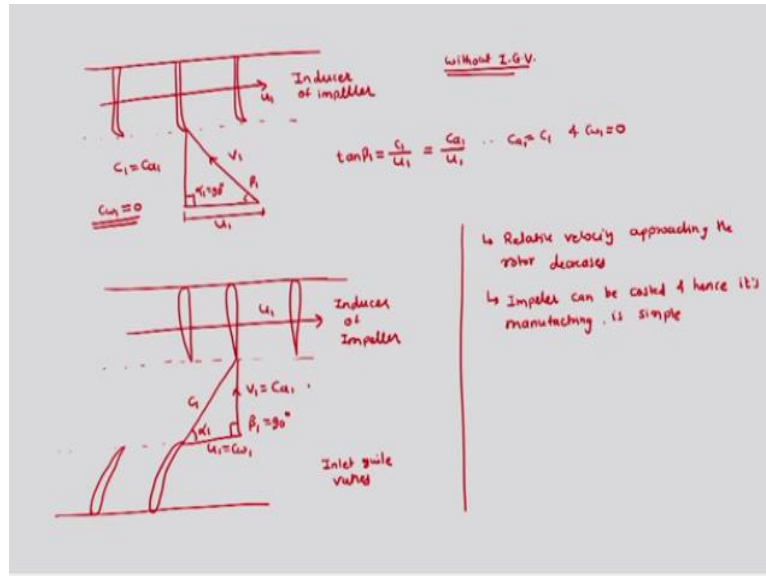 without I.G.V.
Inducer
of impeller
u₁
C₁ = Ca₁
V₁
α₁=90°
β₁
Cω₁ = 0
u₁
tanβ₁ = C₁/u₁ = Ca₁/u₁ ∵ Ca₁ = C₁ & Cω₁ = 0
u₁
Inducer
of
Impeller
C₁
V₁ = Ca₁
α₁
β₁ = 90°
u₁ = Cω₁
Inlet guile
vanes
↳ Relative velociy approaching the
rotor decreases
↳ Impeler can be casted & hence it's
manufacting. is simple